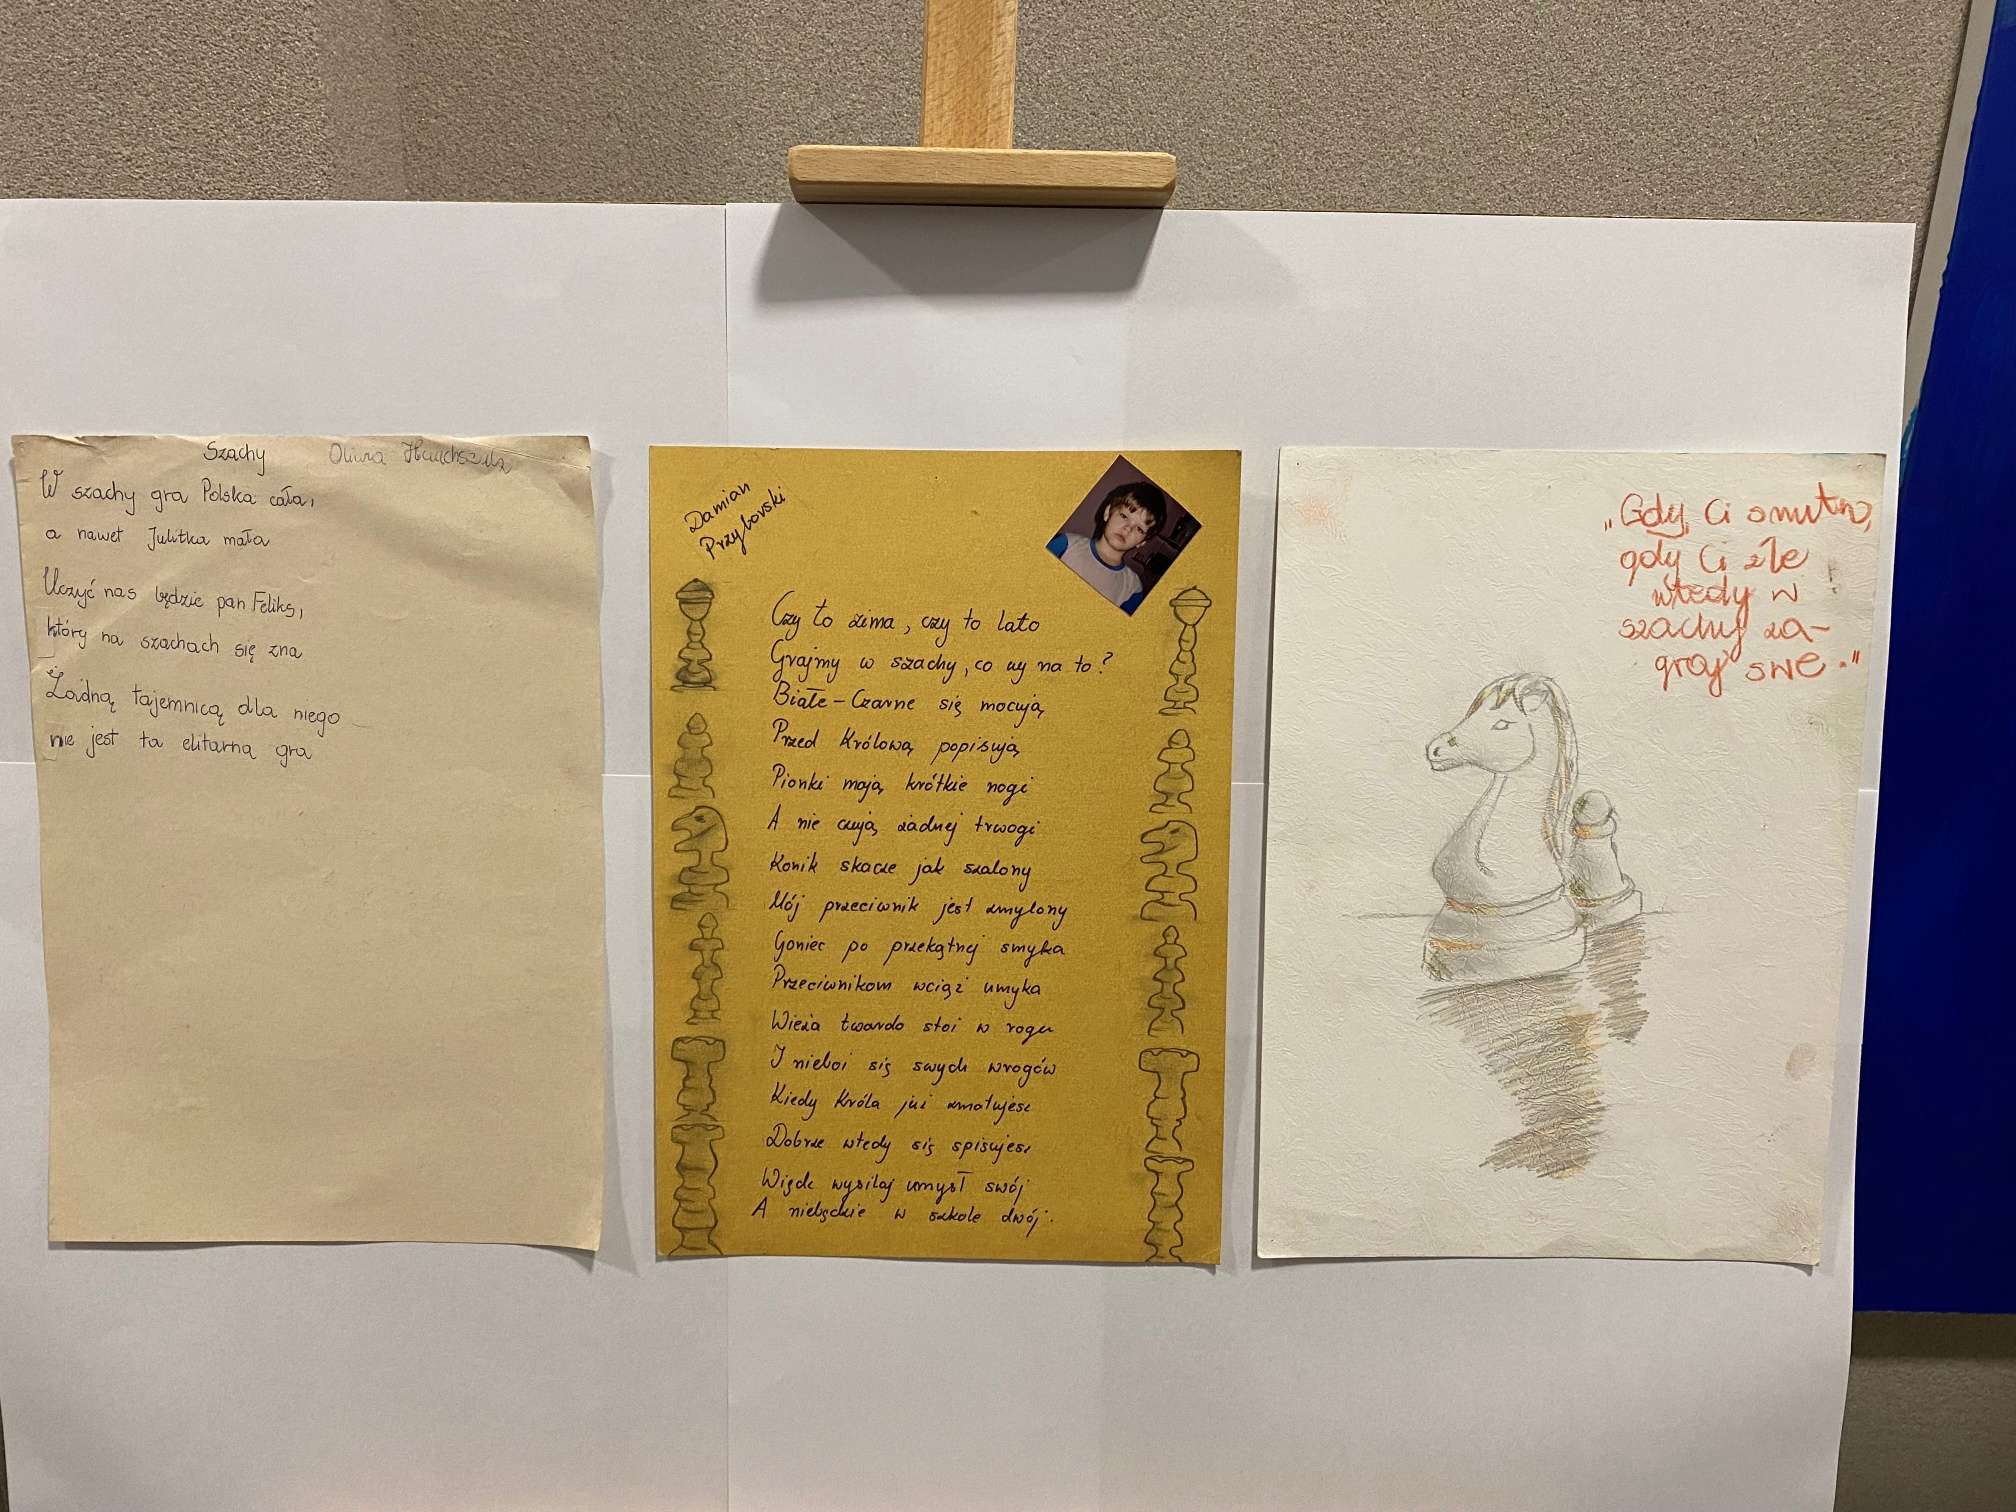 Szachy Oliwia
W szachy gra Polska cała,
a nawet Julitka mała
Uczyć nas będzie pan Feliks,
który na szachach się zna
Żadną tajemnicą dla niego
nie jest ta elitarna gra
Damian
Przybovski
Czy to zima, czy to lato
Grajmy w szachy, co wy na to?
Białe-Czarne się mocują
Przed Królową popisują
Pionki mają krótkie nogi
A nie czują żadnej trwogi
Konik skacze jak szalony
Mój przeciwnik jest zmylony
Goniec po przekątnej smyka
Przeciwnikom wciąż umyka
Wieża twardo stoi w rogu
I nieboi się swych wrogów
Kiedy Króla już zmatujesz
Dobrze wtedy się spisujesz
Więdc wysilaj umysł swój
A niebędzie w szkole dwój.
„Gdy Ci smutno,
gdy Ci źle
wtedy w
szachy za-
graj swe."